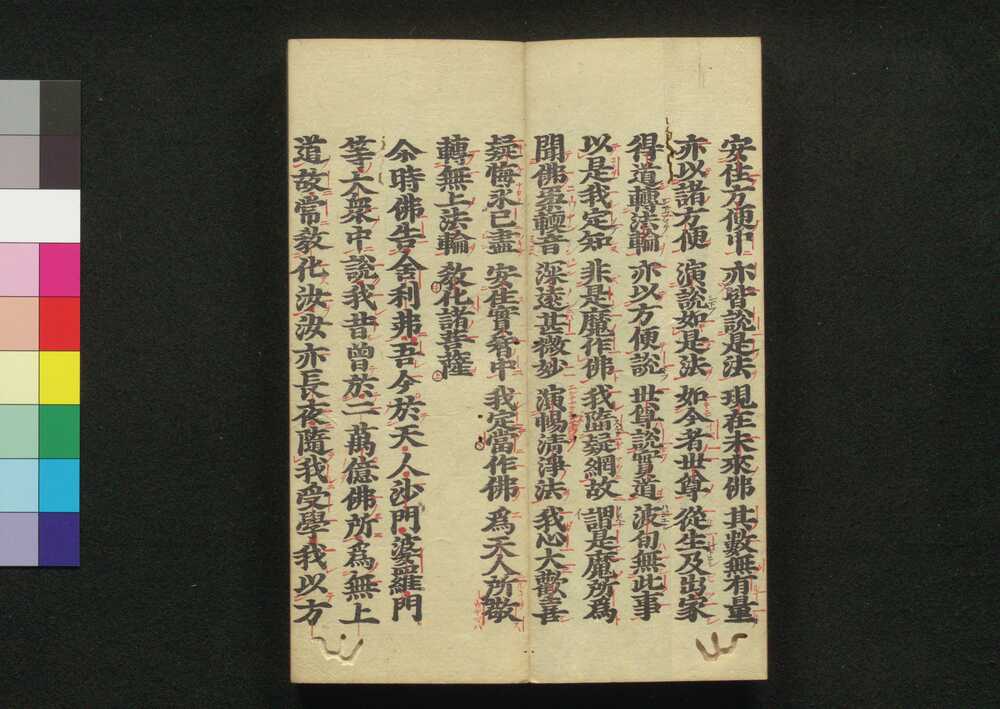 安住方便中 亦皆說是法 現在未來佛 其數無有量
亦以諸方便 演說如是法 如今者世尊 從生及出家
得道轉法輪 亦以方便說 世尊說實道 波旬無此事
以是我定知 非是魔作佛 我墮疑網故 謂是魔所為
聞佛柔輭音 深遠甚微妙 演暢清淨法 我心大歡喜
疑悔永已盡 安住實智中 我定當作佛 為天人所敬
轉無上法輪 教化諸菩薩
尒時佛告舍利弗吾今於天人沙門婆羅門
等大衆中說我昔曾於二萬億佛所為無上
道故常教化汝汝亦長夜隨我受學我以方